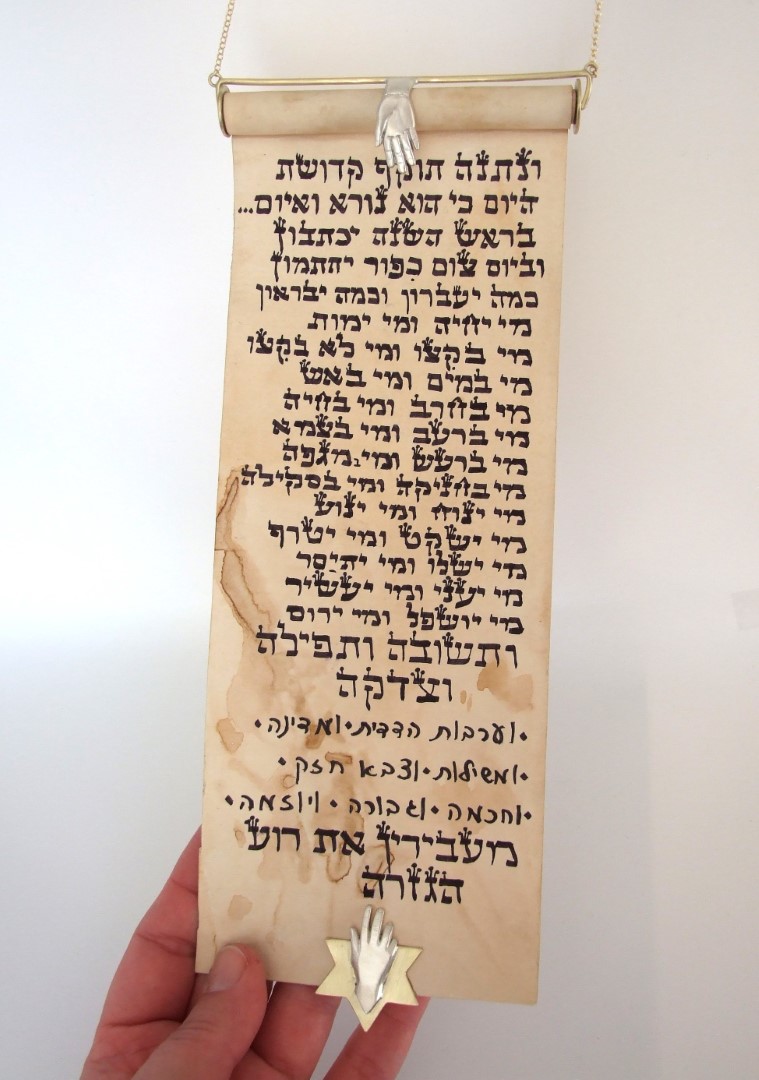 ונתנה תוקף קדושת
היום כי הוא נורא ואיום...
בראש השנה יכתבון
וביום צום כפור יחתמון
כמה יעברון וכמה יבראון
מי יחיה ומי ימות
מי בקצו ומי לא בקצו
מי במים ומי באש
מי בחרב ומי בחיה
מי ברעב ומי בצמא
מי ברעש ומי במגפה
מי בחניקה ומי בסקילה
מי ינוח ומי ינוע
מי ישקט ומי יטרף
מי ישלו ומי יתיסר
מי יעני ומי יעשיר
מי יושפל ומי ירום
ותשובה ותפילה
וצדקה
•וערבות הדדית•ומדינה•
•ומשילות•וצבא חזק•
•וחכמה •וגבורה • ויוזמה•
מעבירין את רוע
הגזרה